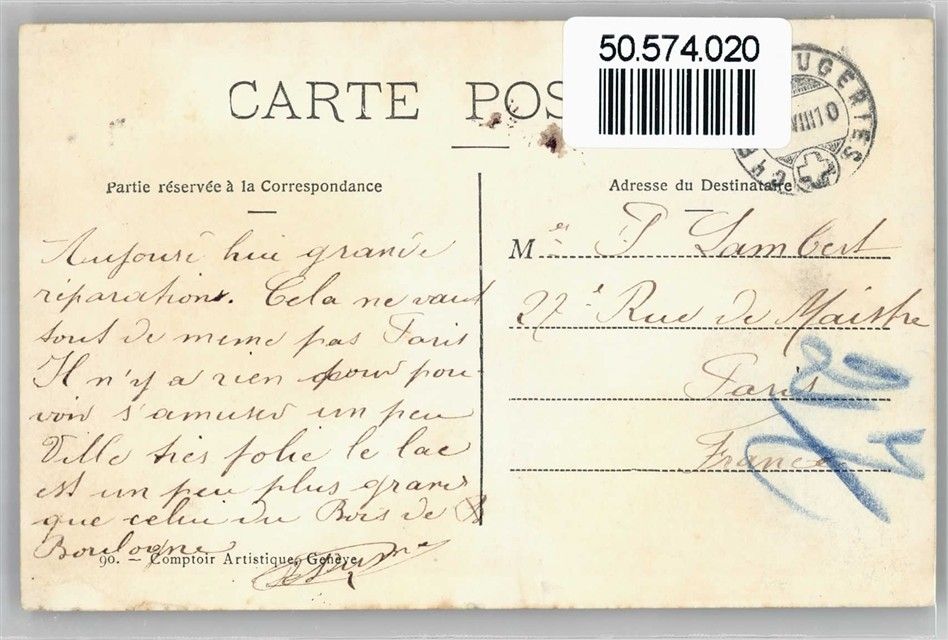 50.574.020
CARTE POS
UGERTES
VIII 10
Partie réservée à la Correspondance
Adresse du Destinataire
Aujourd hui grande
réparations. Cela ne vaut
tout de meme pas Paris
Il n'y a rien pour pou-
voir s'amuser un peu
Ville très jolie le lac
est un peu plus grand
que celui du Bois de B
Boulogne
M P Lambert
27 Rue de Maistre
Paris
France
90. — Comptoir Artistique, Genève